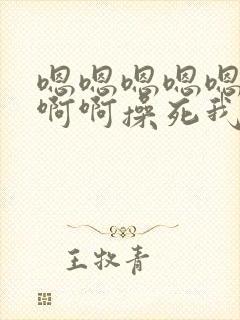 嗯嗯嗯嗯嗯
啊啊操死我
王牧青